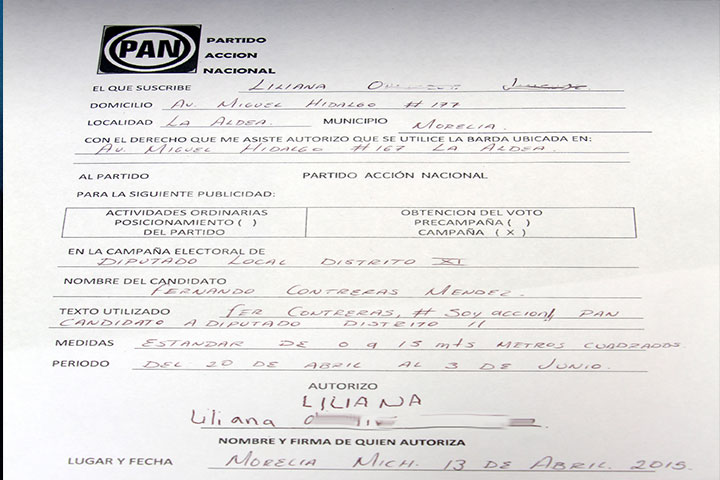 PAN PARTIDO
ACCION
NACIONAL
EL QUE SUSCRIBE LILIANA
DOMICILIO AV. MIGUEL HIDALGO # 177
LOCALIDAD LA ALDEA. MUNICIPIO MORELIA.
CON EL DERECHO QUE ME ASISTE AUTORIZO QUE SE UTILICE LA BARDA UBICADA EN:
AV. MIGUEL HIDALGO # 167 LA ALDEA.
AL PARTIDO PARTIDO ACCIÓN NACIONAL
PARA LA SIGUIENTE PUBLICIDAD:
ACTIVIDADES ORDINARIAS OBTENCION DEL VOTO
POSICIONAMIENTO ( ) PRECAMPAÑA ( )
DEL PARTIDO CAMPAÑA ( X )
EN LA CAMPAÑA ELECTORAL DE
DIPUTADO LOCAL DISTRITO XI
NOMBRE DEL CANDIDATO
FERNANDO CONTRERAS MENDEZ.
TEXTO UTILIZADO FER CONTRERAS, # Soy accion, PAN
CANDIDATO A DIPUTADO DISTRITO 11
MEDIDAS ESTANDAR DE 0 a 15 mts METROS CUADRADOS.
PERIODO DEL 20 DE ABRIL AL 3 DE JUNIO.
AUTORIZO
LILIANA
Liliana
NOMBRE Y FIRMA DE QUIEN AUTORIZA
LUGAR Y FECHA MORELIA MICH. 13 DE ABRIL. 2015.